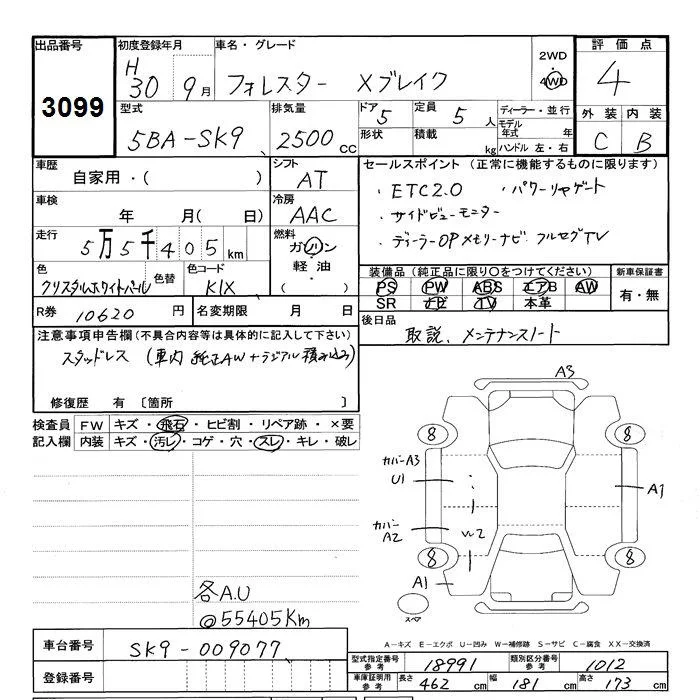 出品番号 初度登録年月 車名・グレード 2WD 評価点
3099 H30 9月 フォレスター Xブレイク 4WD 4
型式 排気量 ドア 5 定員 5 人 ディーラー・並行 外装 内装
5BA-SK9 2500 cc 形状 積載 kg モデル年式 年 ハンドル 左・右 C B
車歴 自家用・( ) シフト AT
車検 年 月( 日) 冷房 AAC
走行 5万5千405km 燃料 ガソリン 軽油 ( )
色 クリスタルホワイトパール 色替 色コード K1X
R券 10620 円 名変期限 月 日
セールスポイント(正常に機能するものに限ります)
・ETC2.0 ・パワーリヤゲート
・サイドビューモニター
・ディーラーOPメモリーナビ フルセグTV
装備品(純正品に限り○をつけてください) 新車保証書
PS PW ABS エアB AW 有・無
SR ナビ TV 本革
後日品 取説、メンテナンスノート
注意事項申告欄(不具合内容等は具体的に記入して下さい)
スタッドレス (車内 純正AW+ラジアル積み込み)
修復歴 有〔箇所 〕
検査員 FW キズ・飛石・ヒビ割・リペア跡・×要
記入欄 内装 キズ・汚レ・コゲ・穴・スレ・キレ・破レ
各A.U
@55405Km
A3
8 8
カバーA3
U1 A1
カバーA2 W2
8 8
A1
スペア
A-キズ E-エクボ U-凹み W-補修跡 S-サビ C-腐食 XX-交換済
車台番号 SK9-009077
登録番号
型式指定番号 参考 18991 類別区分番号 参考 1012
車庫証明用 参考 長さ 462 cm 幅 181 cm 高さ 173 cm